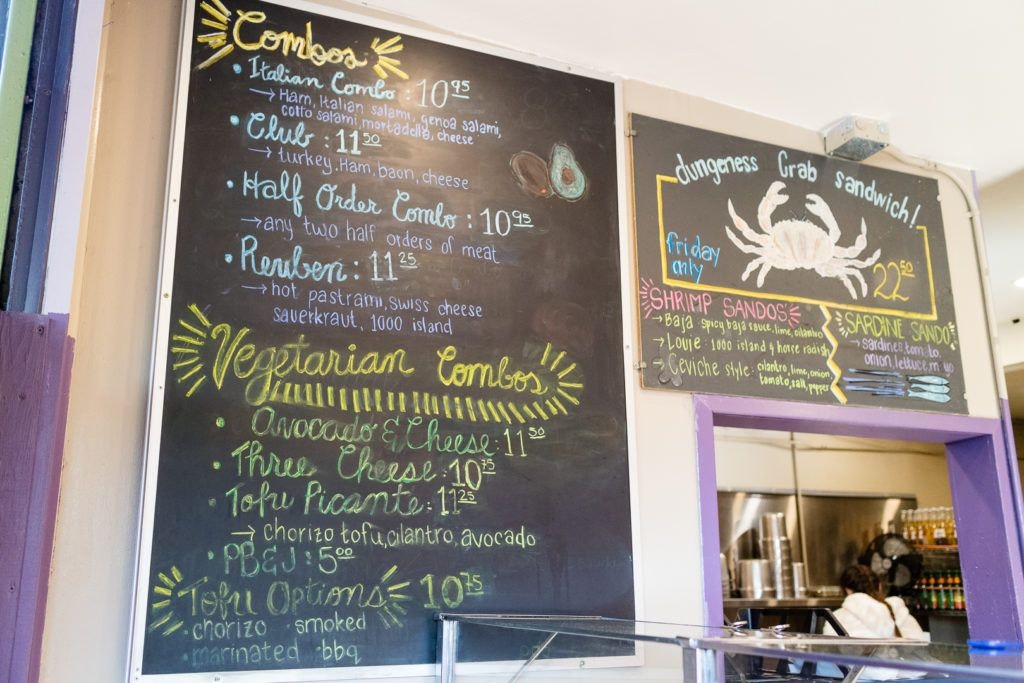 Combos
• Italian Combo : 10 95
→ Ham, Italian salami, genoa salami,
cotto salami, mortadella, cheese
• Club : 11 50
→ turkey, Ham, bacn, cheese
• Half Order Combo : 10 95
→ any two half orders of meat
• Reuben : 11 25
→ hot pastrami, swiss cheese
sauerkraut, 1000 island
Vegetarian Combos
• Avocado & Cheese : 11 50
• Three Cheese : 10 75
• Tofu Picante : 11 25
→ chorizo tofu, cilantro, avocado
• PB & J : 5 00
Tofu Options 10 75
• chorizo • smoked
• marinated • bbq
dungeness Crab sandwich!
friday
only
22 50
SHRIMP SANDOS
→ Baja : spicy baja sauce, lime, cilantro
→ Louie : 1000 island & horse radish
→ Ceviche style : cilantro, lime, onion,
tomato, salt, pepper
SARDINE SANDO
→ sardines, tom.to,
onion, lettuce, m yo